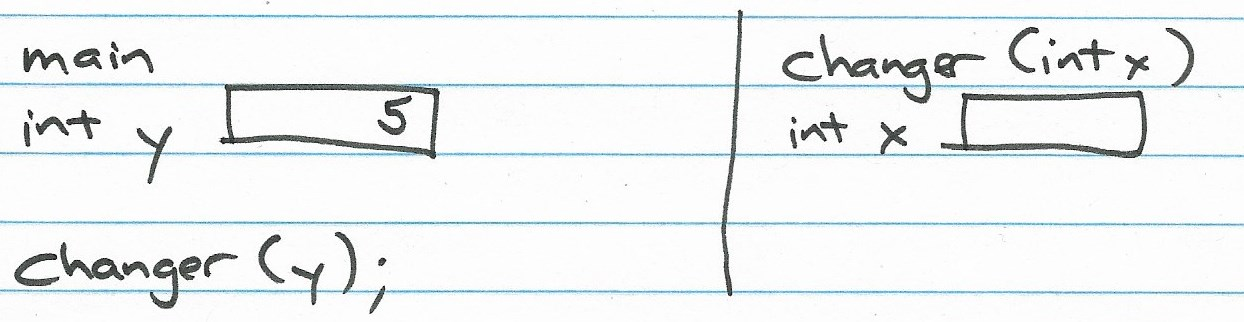 main
int y 5
changer (y);
changer (int x)
int x